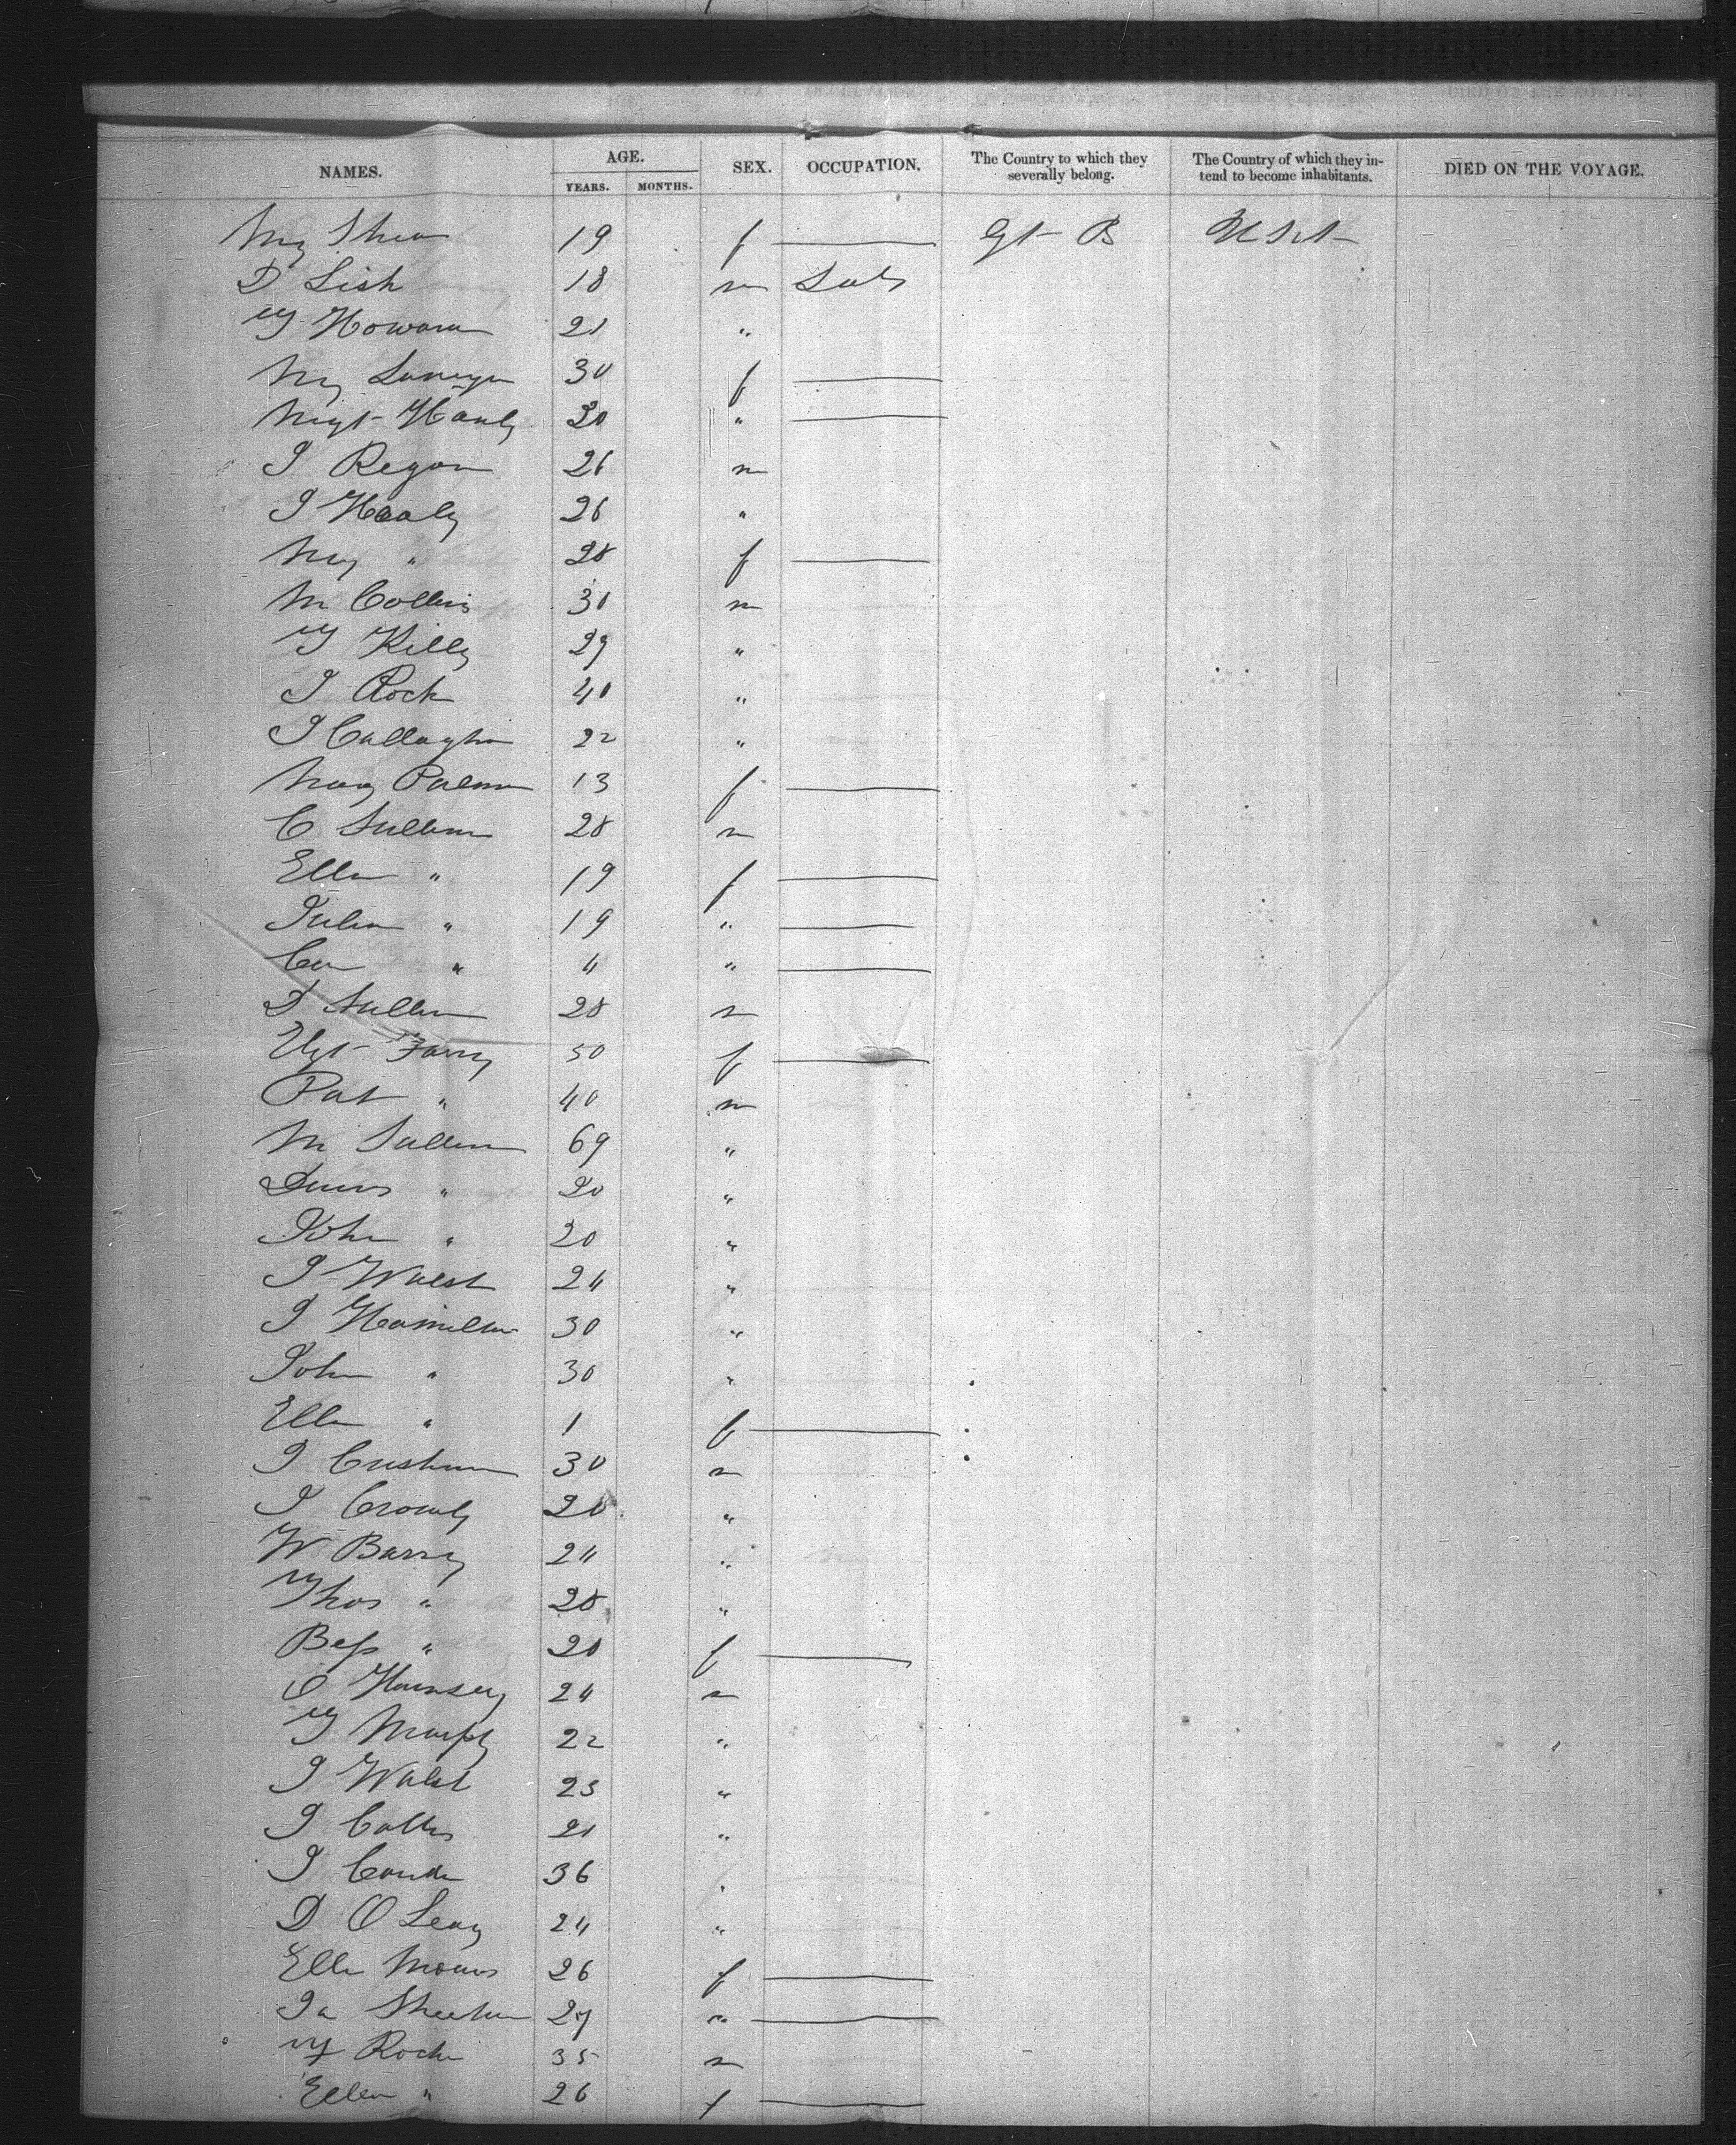 NAMES. AGE. YEARS. MONTHS. SEX. OCCUPATION. The Country to which they severally belong. The Country of which they intend to become inhabitants. DIED ON THE VOYAGE.
My Shea 19 f Gt B U St
D Lish 18 m Lab
T Howard 21 "
My 30 f
Mgt Hanly 30 "
J Regan 26 m
J Healy 26 "
My " 28 f
M Collins 30 m
T Killy 29 "
J Rock 40 "
J Callaghan 22 "
Mary Palmer 13 f
C Sullivan 28 m
Ellen " 19 f
Julia " 19 "
" 4 "
D Sullivan 28 m
50 f
Pat " 40 m
M Sullivan 69 "
Dennis " 20 "
John " 20 "
J Walsh 24 "
J Hamilton 30 "
John " 30 "
Ellen " 1 f
J Cushman 30 m
J Crowly 20 "
W Barry 24 "
Thos " 28 "
Bess " 20 f
24 m
T Murphy 22 "
J Walsh 23 "
J Collins 21 "
J 36 "
D O Leary 24 "
Ellen 26 f
Ja Sheehan 27 "
Roche 35 m
Ellen " 26 f